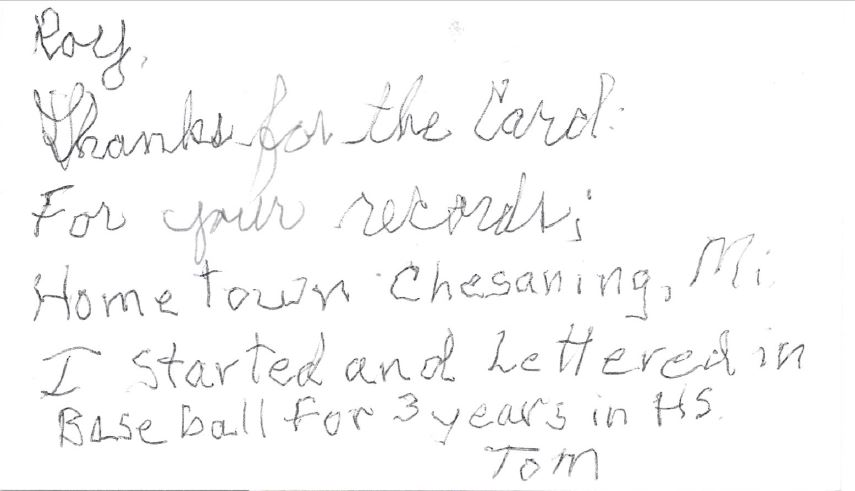 Roy,
Thanks for the Card.
For your records;
Home Town Chesaning, Mi.
I started and Lettered in
Baseball for 3 years in HS.
Tom